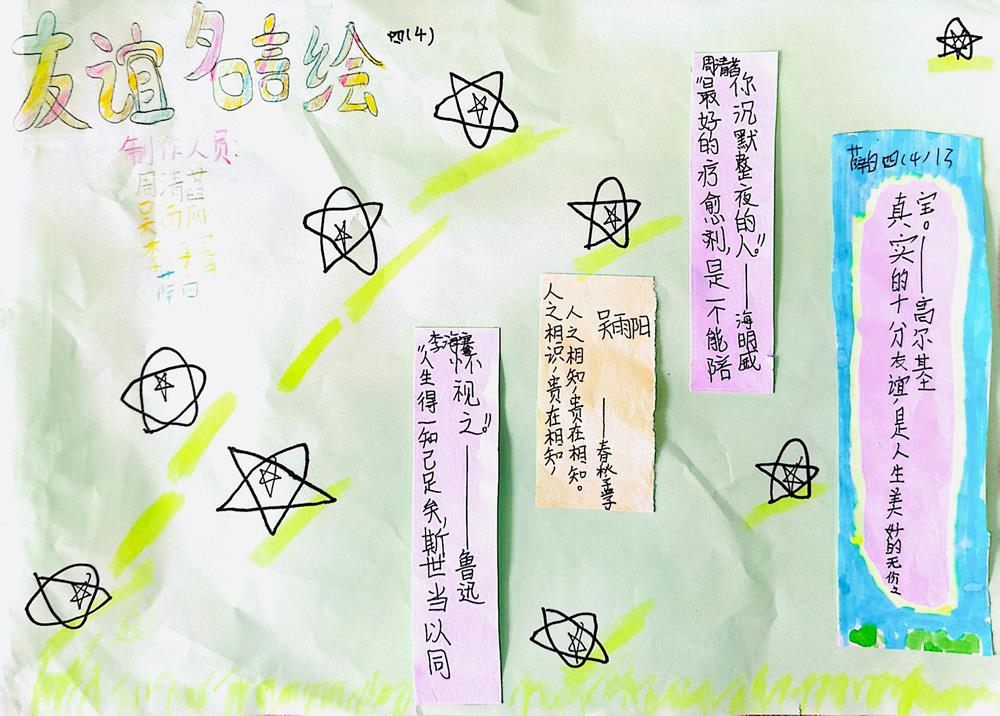 友谊名言绘 四(4)
制作人员:
周清
吴雨阳
李
薛白
"人生得一知己足矣,斯世当以同
怀视之。"——鲁迅
吴雨阳
人之相识,贵在相知,
人之相知,贵在相知。
——春秋
周清
"最好的疗愈剂,是一个能陪
你沉默整夜的人。"——海明威
薛白四(4)13
真实的十分友谊,是人生美好的无价之
宝。——高尔基